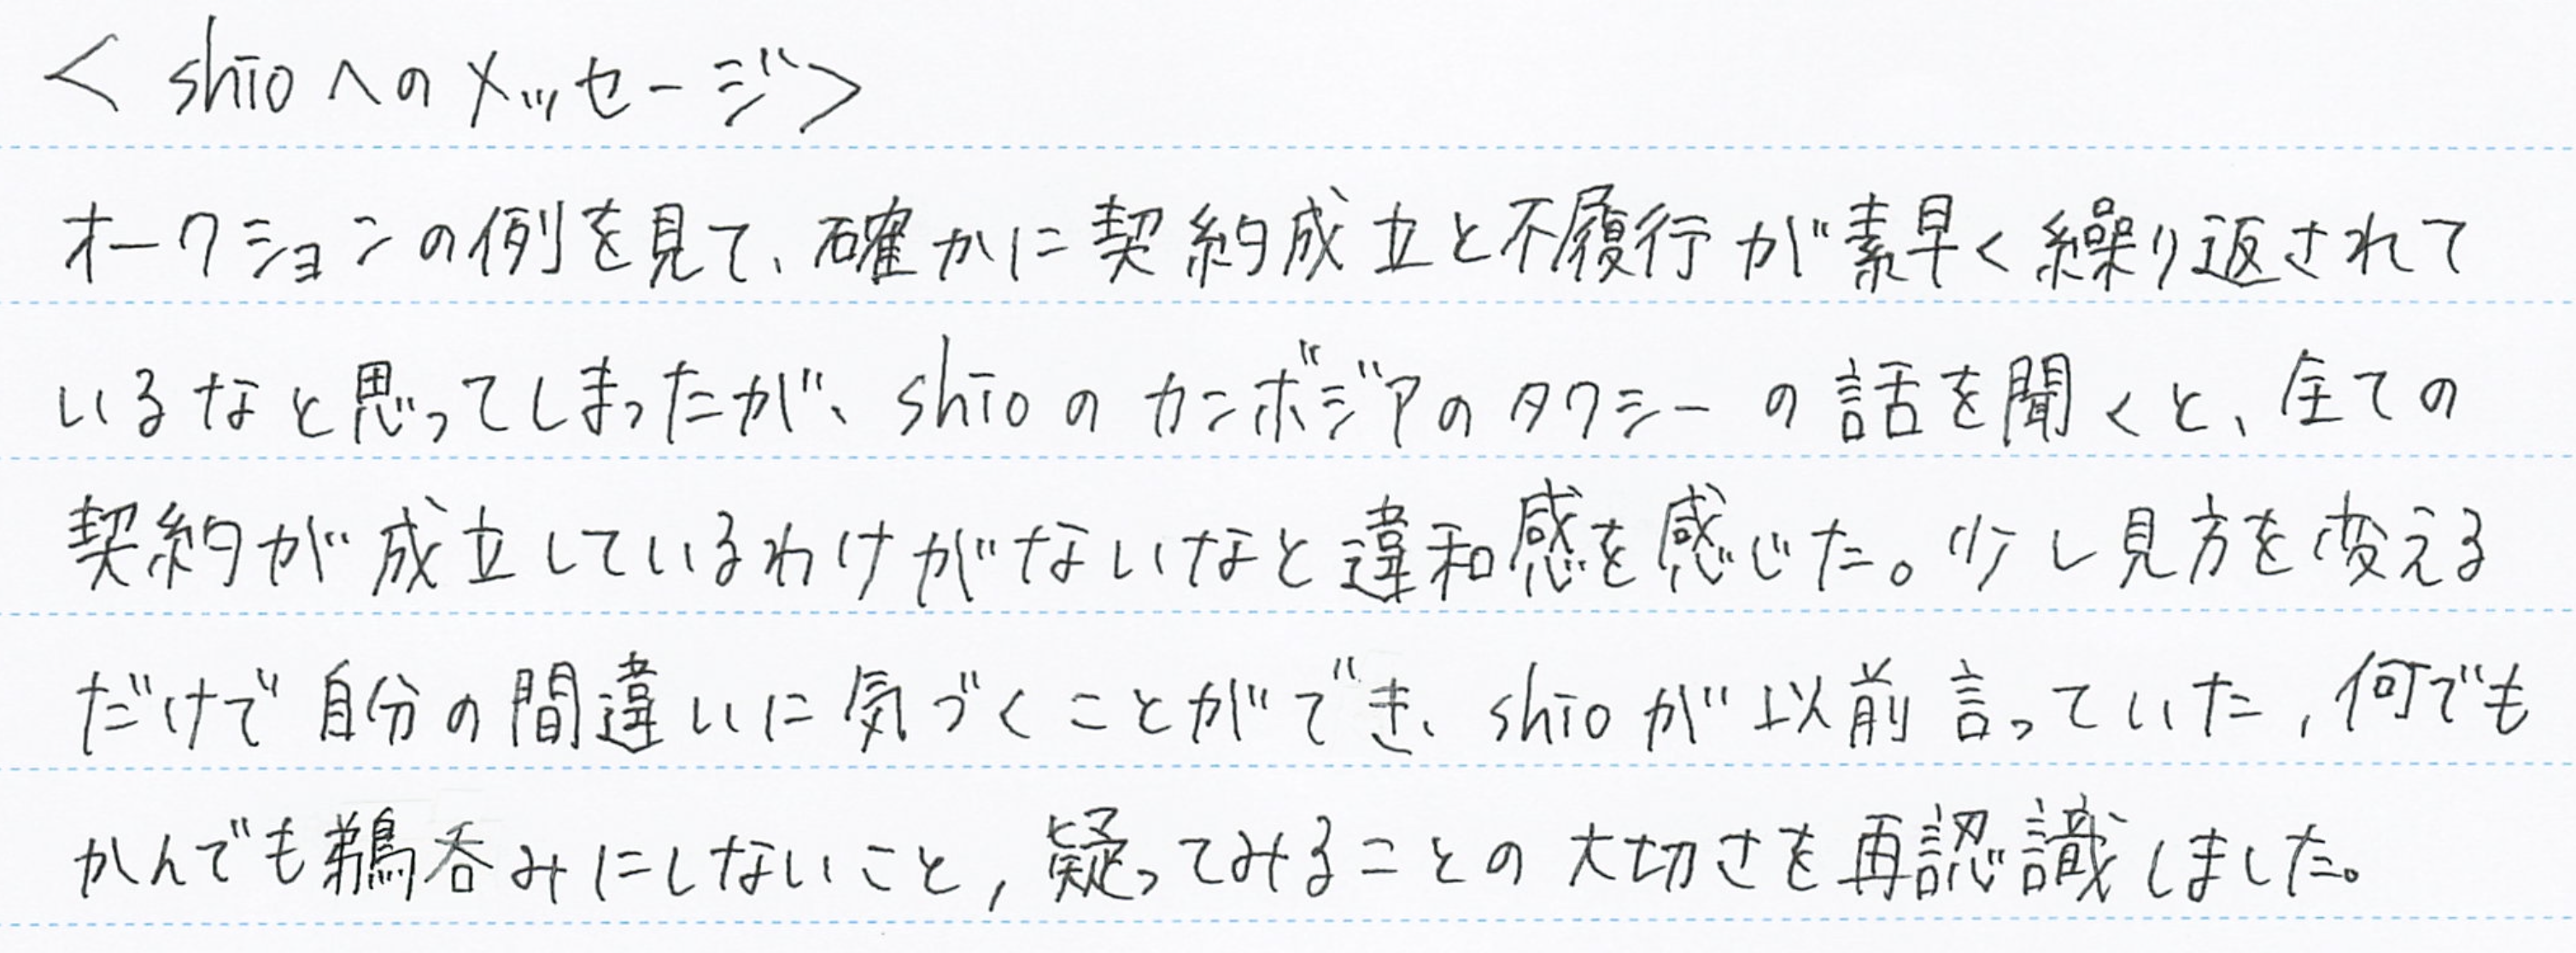 < shioへのメッセージ>
オークションの例を見て、確かに契約成立と不履行が素早く繰り返されて
いるなと思ってしまったが、shioのカンボジアのタクシーの話を聞くと、全ての
契約が成立しているわけがないなと違和感を感じた。少し見方を変える
だけで自分の間違いに気づくことができ、shioが以前言っていた,何でも
かんでも鵜呑みにしないこと,疑ってみることの大切さを再認識しました。